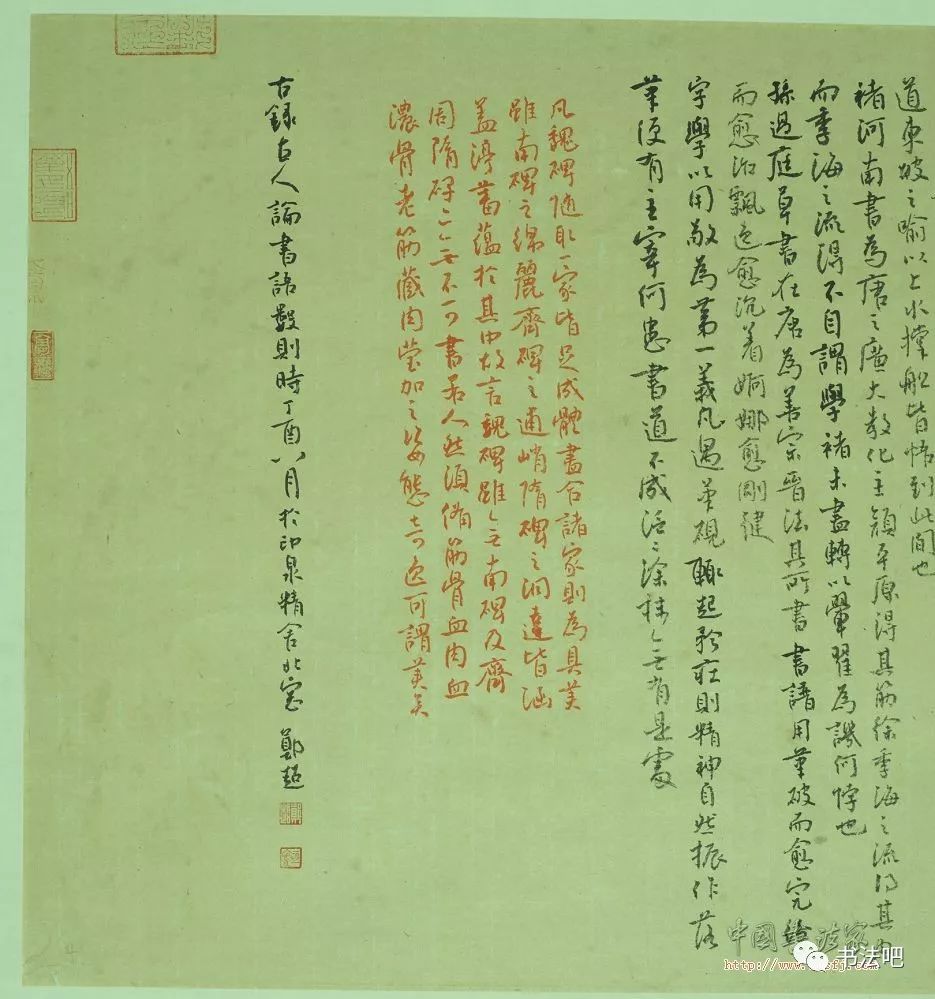 道東坡之喻以上水撐船皆悟到此間也
褚河南書為唐之廣大教化主顏平原得其筋徐季海之流得其
而季海之流得不自謂學褚未盡轉以輩翟為謗何悖也
孫過庭草書在唐為善宗晉法其所書書譜用筆破而愈完
而愈治飄逸愈沉着婀娜愈剛健
字學以用敬為第一義凡遇筆硯輒起矜莊則精神自然振作落
筆便有主宰何患書道不成泛泛塗抹無有是處
凡魏碑隨取一家皆足成體盡合諸家則為具美
雖南碑之綿麗齊碑之逋峭隋碑之洞達皆涵
蓋淳蓄蘊於其中故言魏碑雖無南碑及齊
周隋碑亦無不可書若人然須備筋骨血肉血
濃骨老筋藏肉瑩加之姿態奇逸可謂美矣
古錄古人論書語數則時丁酉八月於印泉精舍北窗 鄭超
中國書法家
書法吧